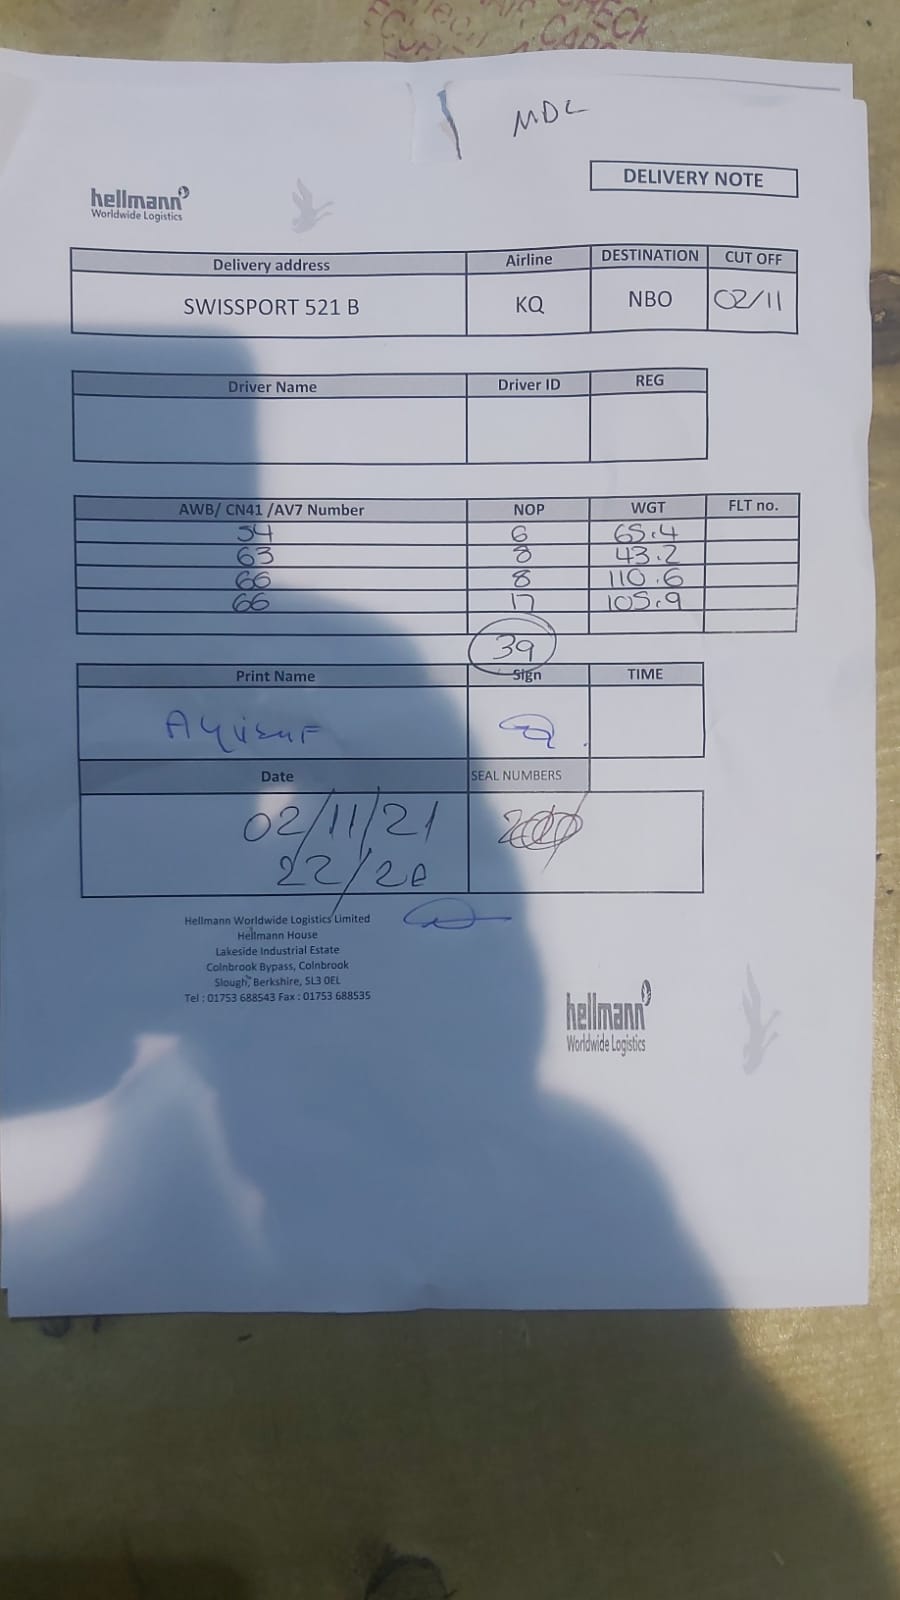 MDC
DELIVERY NOTE
hellmann
Worldwide Logistics
Delivery address Airline DESTINATION CUT OFF
SWISSPORT 521 B KQ NBO 02/11
Driver Name Driver ID REG
AWB/ CN41 /AV7 Number NOP WGT FLT no.
54 6 65.4
63 8 43.2
66 8 110.6
66 17 105.9
39
Print Name Sign TIME
Date SEAL NUMBERS
02/11/21
Hellmann Worldwide Logistics Limited
Hellmann House
Lakeside Industrial Estate
Colnbrook Bypass, Colnbrook
Slough, Berkshire, SL3 0EL
Tel : 01753 688543 Fax : 01753 688535
hellmann
Worldwide Logistics